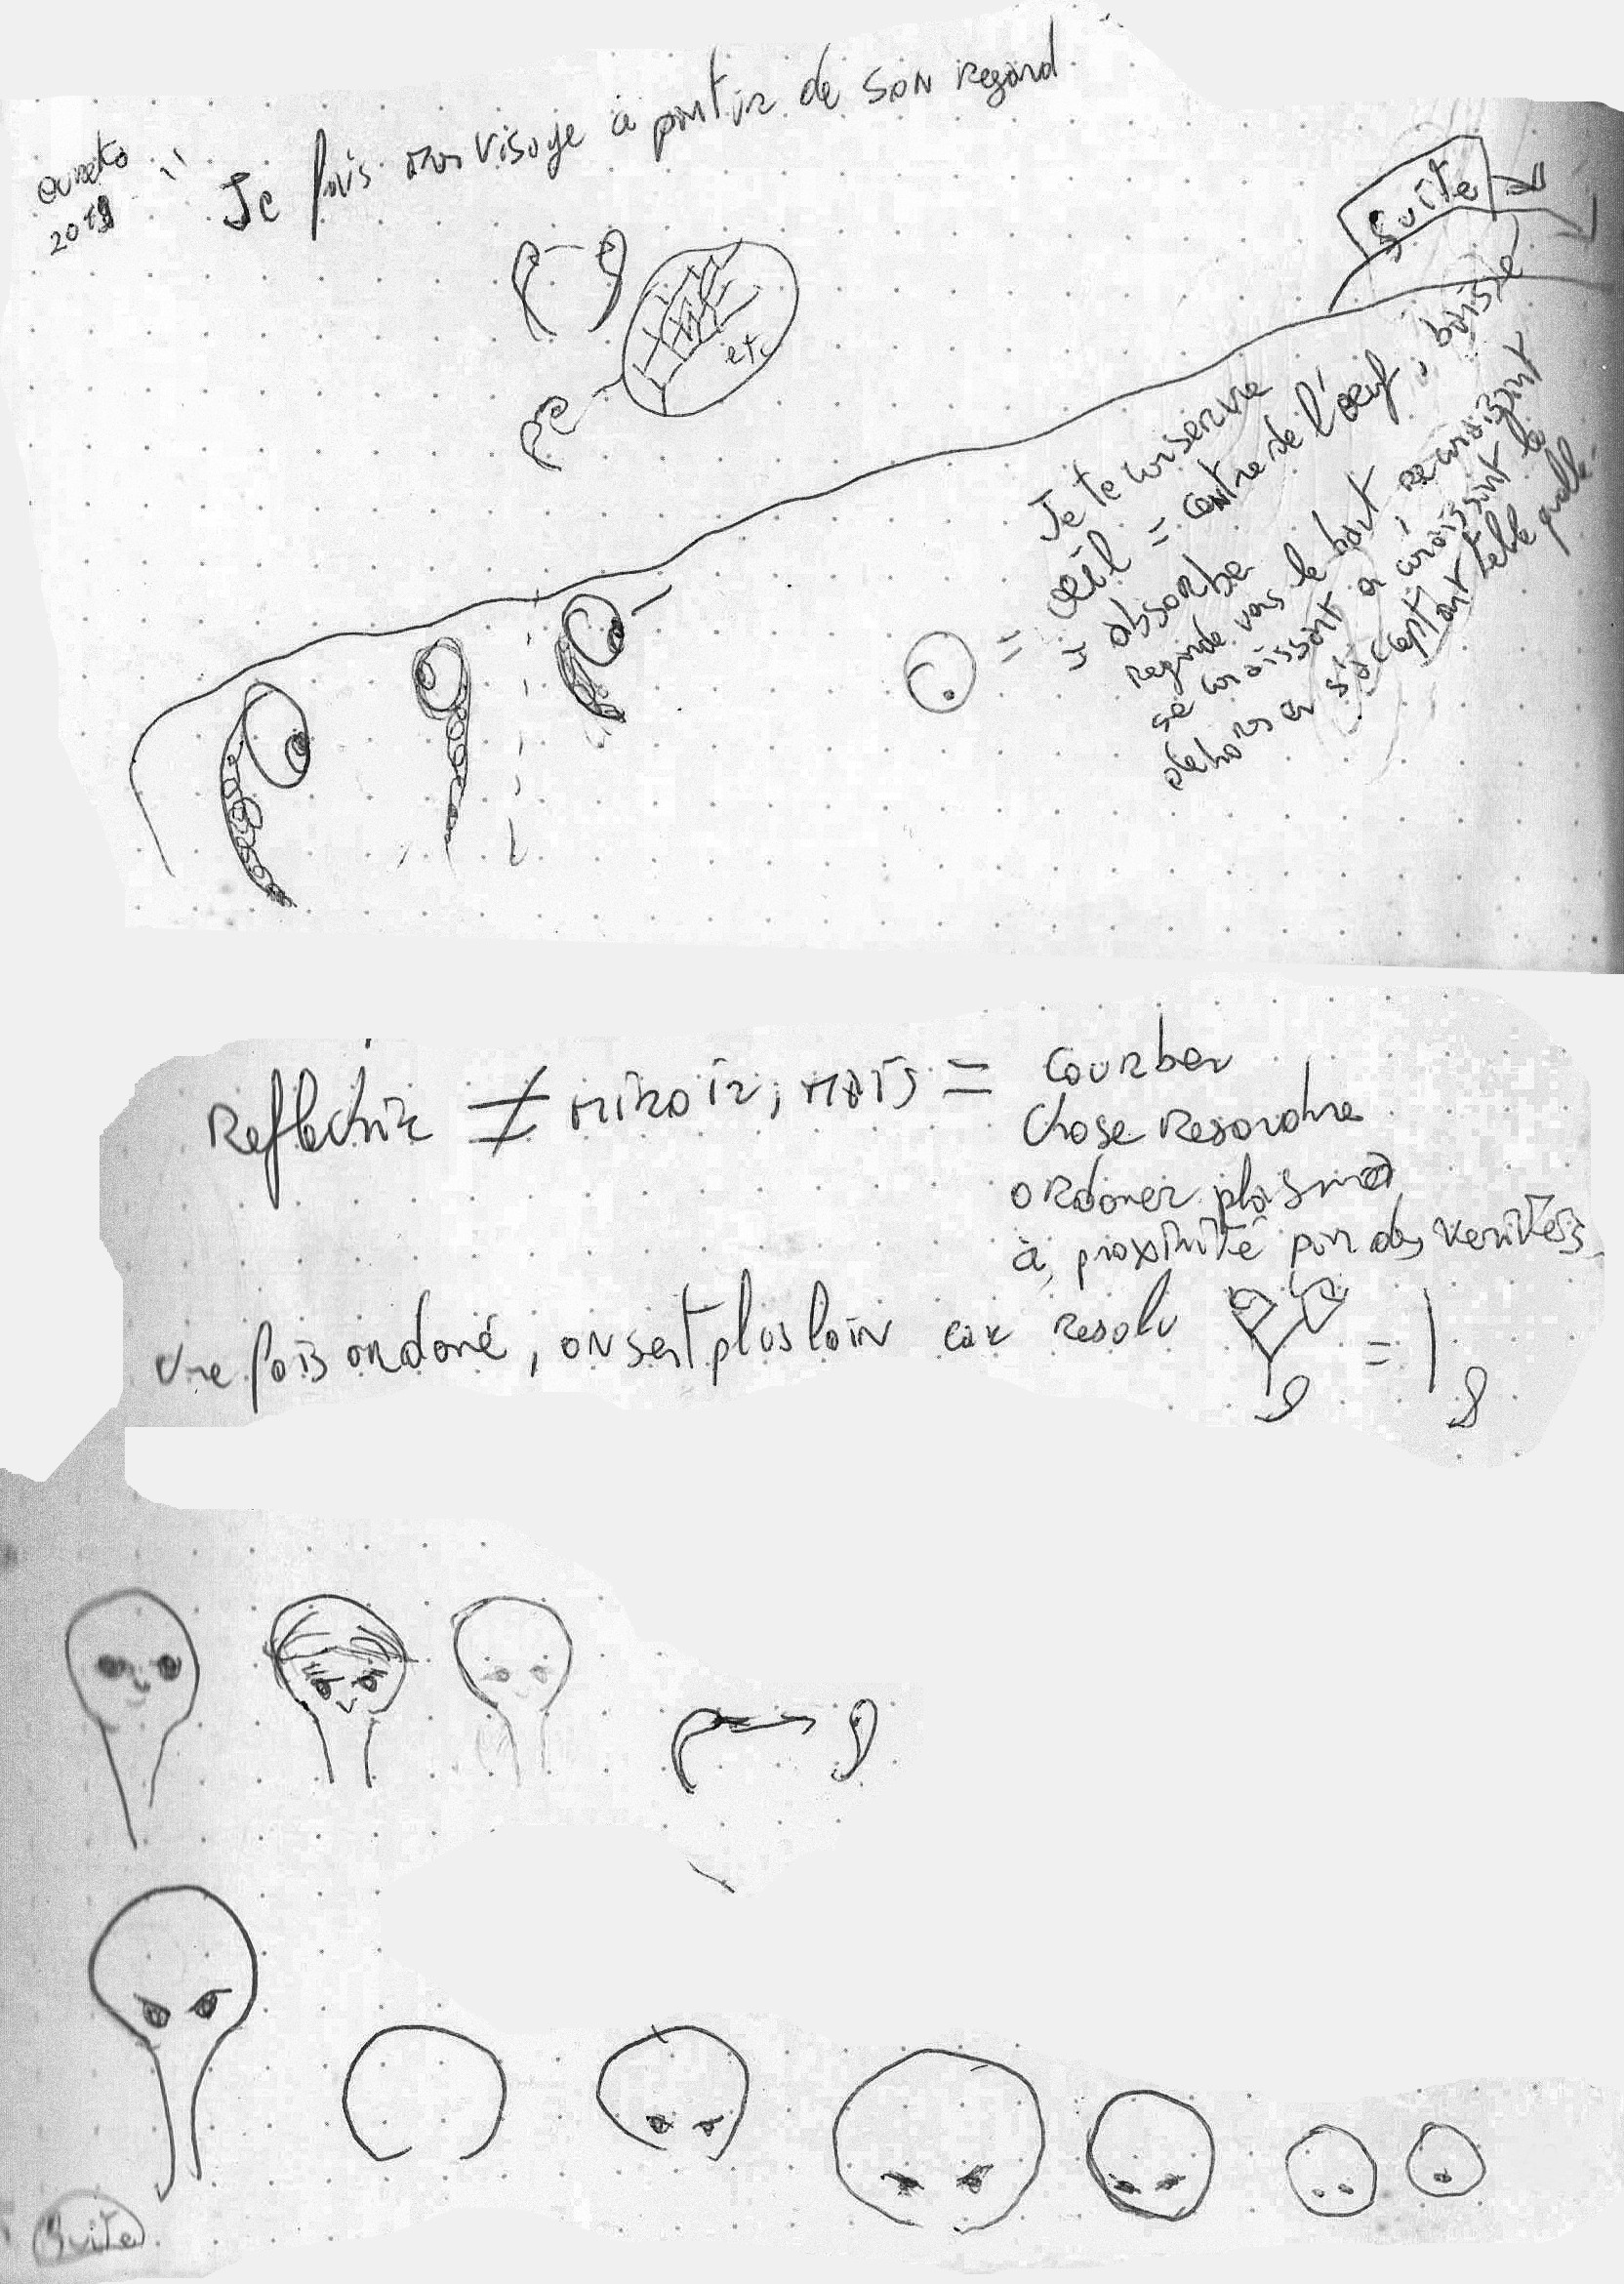 2019
" Je fais mon visage à partir de son regard
Suite
etc
Je te conserve
= œil = centre de l'œuf, baisse
= absorbe
regarde vers le haut reconaissant
se conaissant et conaissant le
dehors et s'acceptant telle quelle.
Reflechir ≠ miroir, mais = courber
Chose resoudre
ordoner plasma
à proximité par des verités
Une fois ordoné, on sent plus loin car resolu
= |
Suite